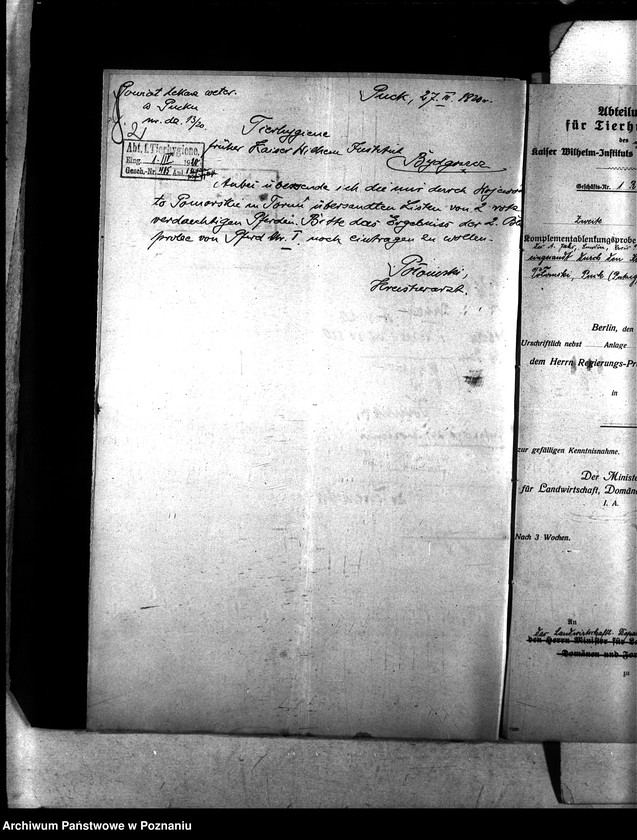 Powiat Lekarz weter.
w Pucku
Puck, 27. II. 1920r.
Tierhygiene
früher Kaiser Wilhelm Institut
Bydgoszcz
Abt. f. Tierhygiene.
Eing. 1. III 19
Gesch.-Nr.
Anbei übersende ich die mir durch
to Pomorskie in Toruń übersandten Listen von 2 rotz
verdaechtigen Pferden. Bitte das Ergebniss der 2. Bl
probe von Pferd Nr. I noch eintragen zu wollen.
Kreistierarzt.
Abteilu
für Tierhy
des
Kaiser Wilhelm-Instituts
Geschäfts-Nr. 1
Zweite
Komplementablenkungsprobe
eingesandt durch den
Berlin, den
Urschriftlich nebst Anlage
dem Herrn Regierungs-Pr
in
zur gefälligen Kenntnisnahme.
Der Ministe
für Landwirtschaft, Domän
I. A.
Nach 3 Wochen.
An
der landwirtschaftl.
den Herrn Minister für
Domänen und For
zu
Archiwum Państwowe w Poznaniu